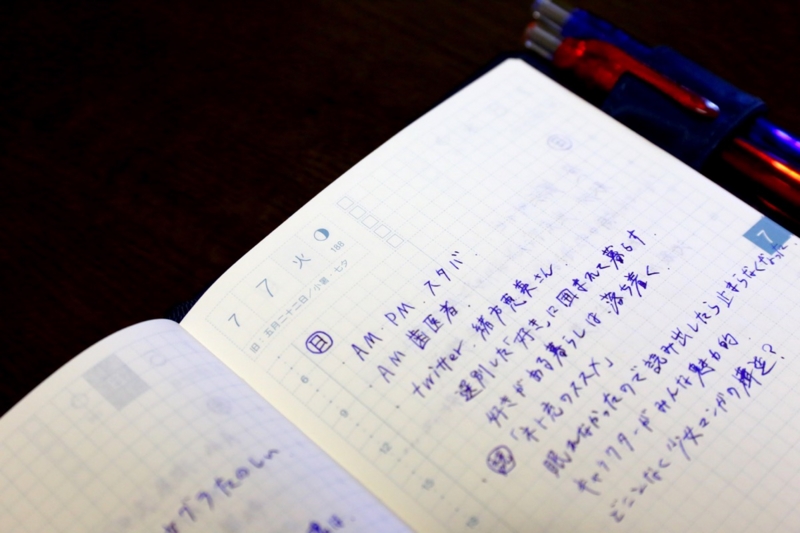 7 7 火 188
旧 五月二十二日/小暑・七夕
7
日
・AM・PM. スタバ.
・AM 歯医者.
・twitter. 緒方恵美さん.
選別した「好き」に囲まれて暮らす.
好きがある暮らしは、落ち着く
・「ネト充のススメ」
眠れなかったので読み出したら止まらなくなった.
キャラクターがみんな魅力的.
どことなく少女マンガ
6
9
12
15
たのしい